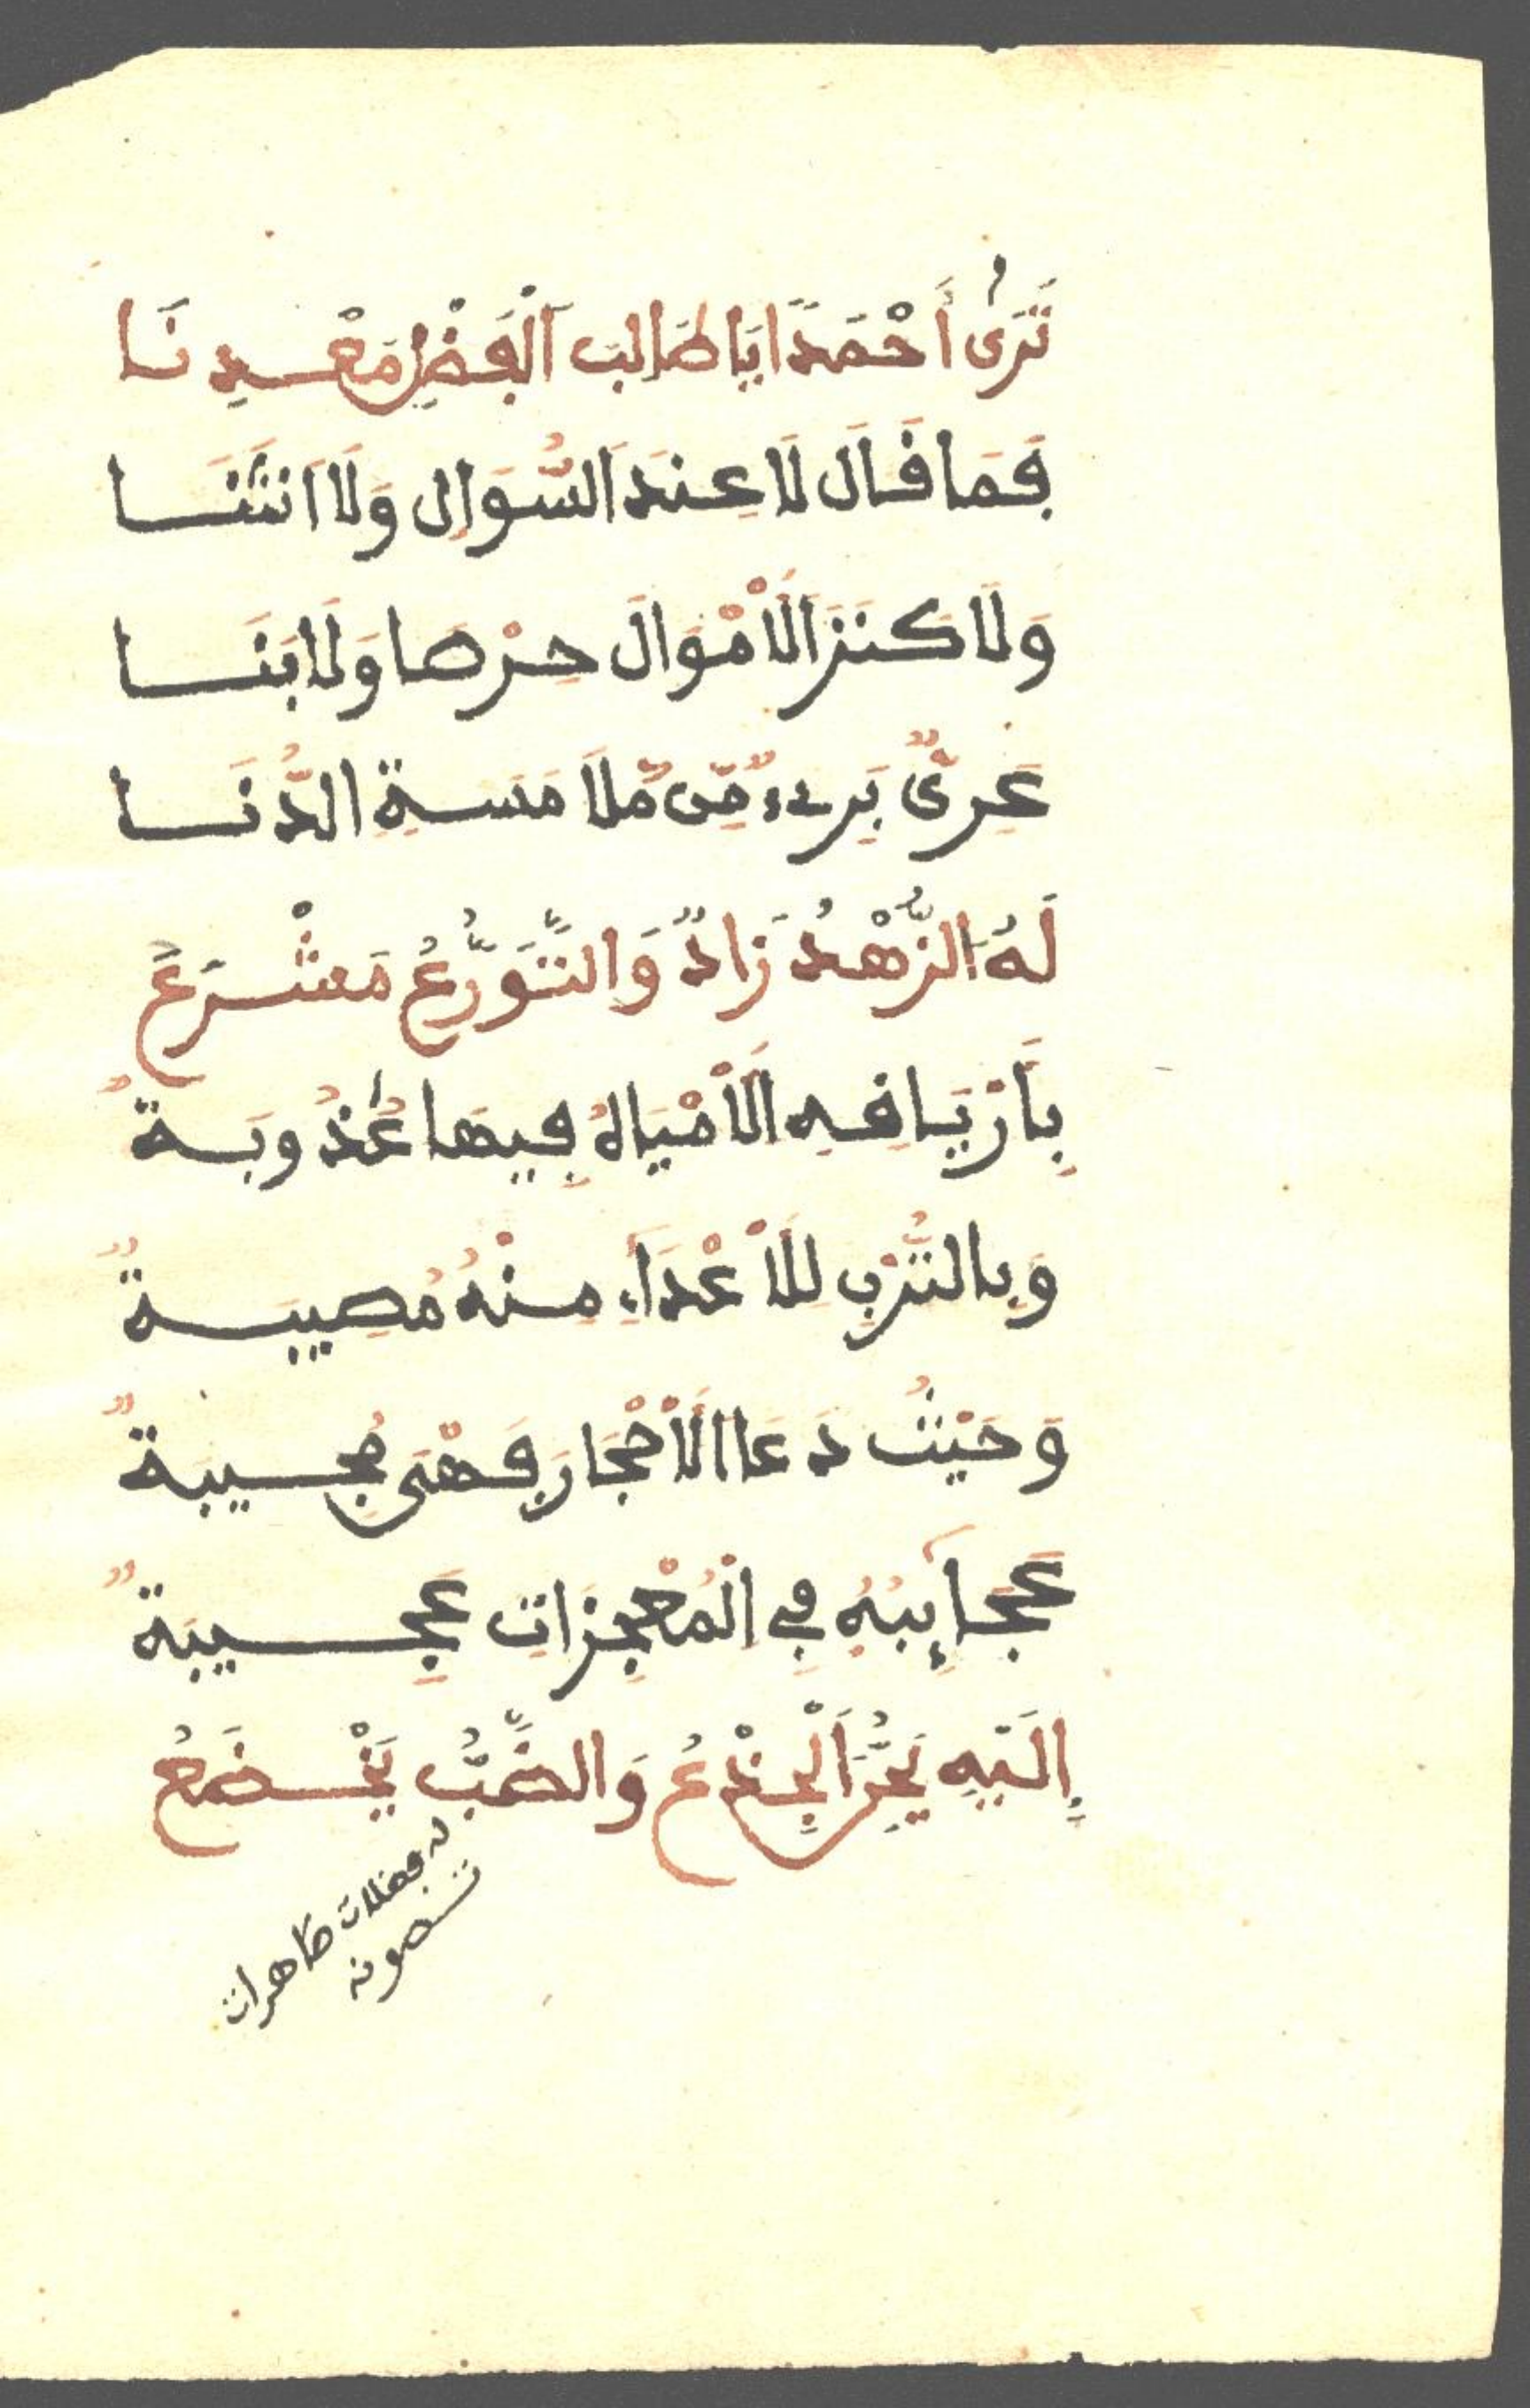 تَرَى أَحْمَدًا يَا طَالِبَ الْفَضْلِ مَعْدِنَا
فَمَا قَالَ لَا عِنْدَ السُّوَالِ وَلَا انْثَنَا
وَلَا كَنَزَ الْأَمْوَالَ حِرْصًا وَلَا ابْتَنَا
عَرِىٌّ بَرِىءٌ مِّن مُّلَامَسَةِ الدُّنَا
لَهُ الزُّهْدُ زَادٌ وَالتَّوَرُّعُ مَشْرَعَ
بِأَرْيَافِهِ الْأَمْيَاهُ فِيهَا عُذُوبَةٌ
وَبِالتُّرْبِ لِلْأَعْدَآءِ مِنْهُ مُصِيبَةٌ
وَحَيْثُ دَعَا الْأَحْجَارَ فَهْىَ مُجِيبَةٌ
عَجَآئِبُهُ فِى الْمُعْجِزَاتِ عَجِيبَةٌ
إِلَيْهِ يَحِنُّ الْجِذْعُ وَالضَّبُّ يَخْضَعُ
له فضلات طاهرات
تصونه